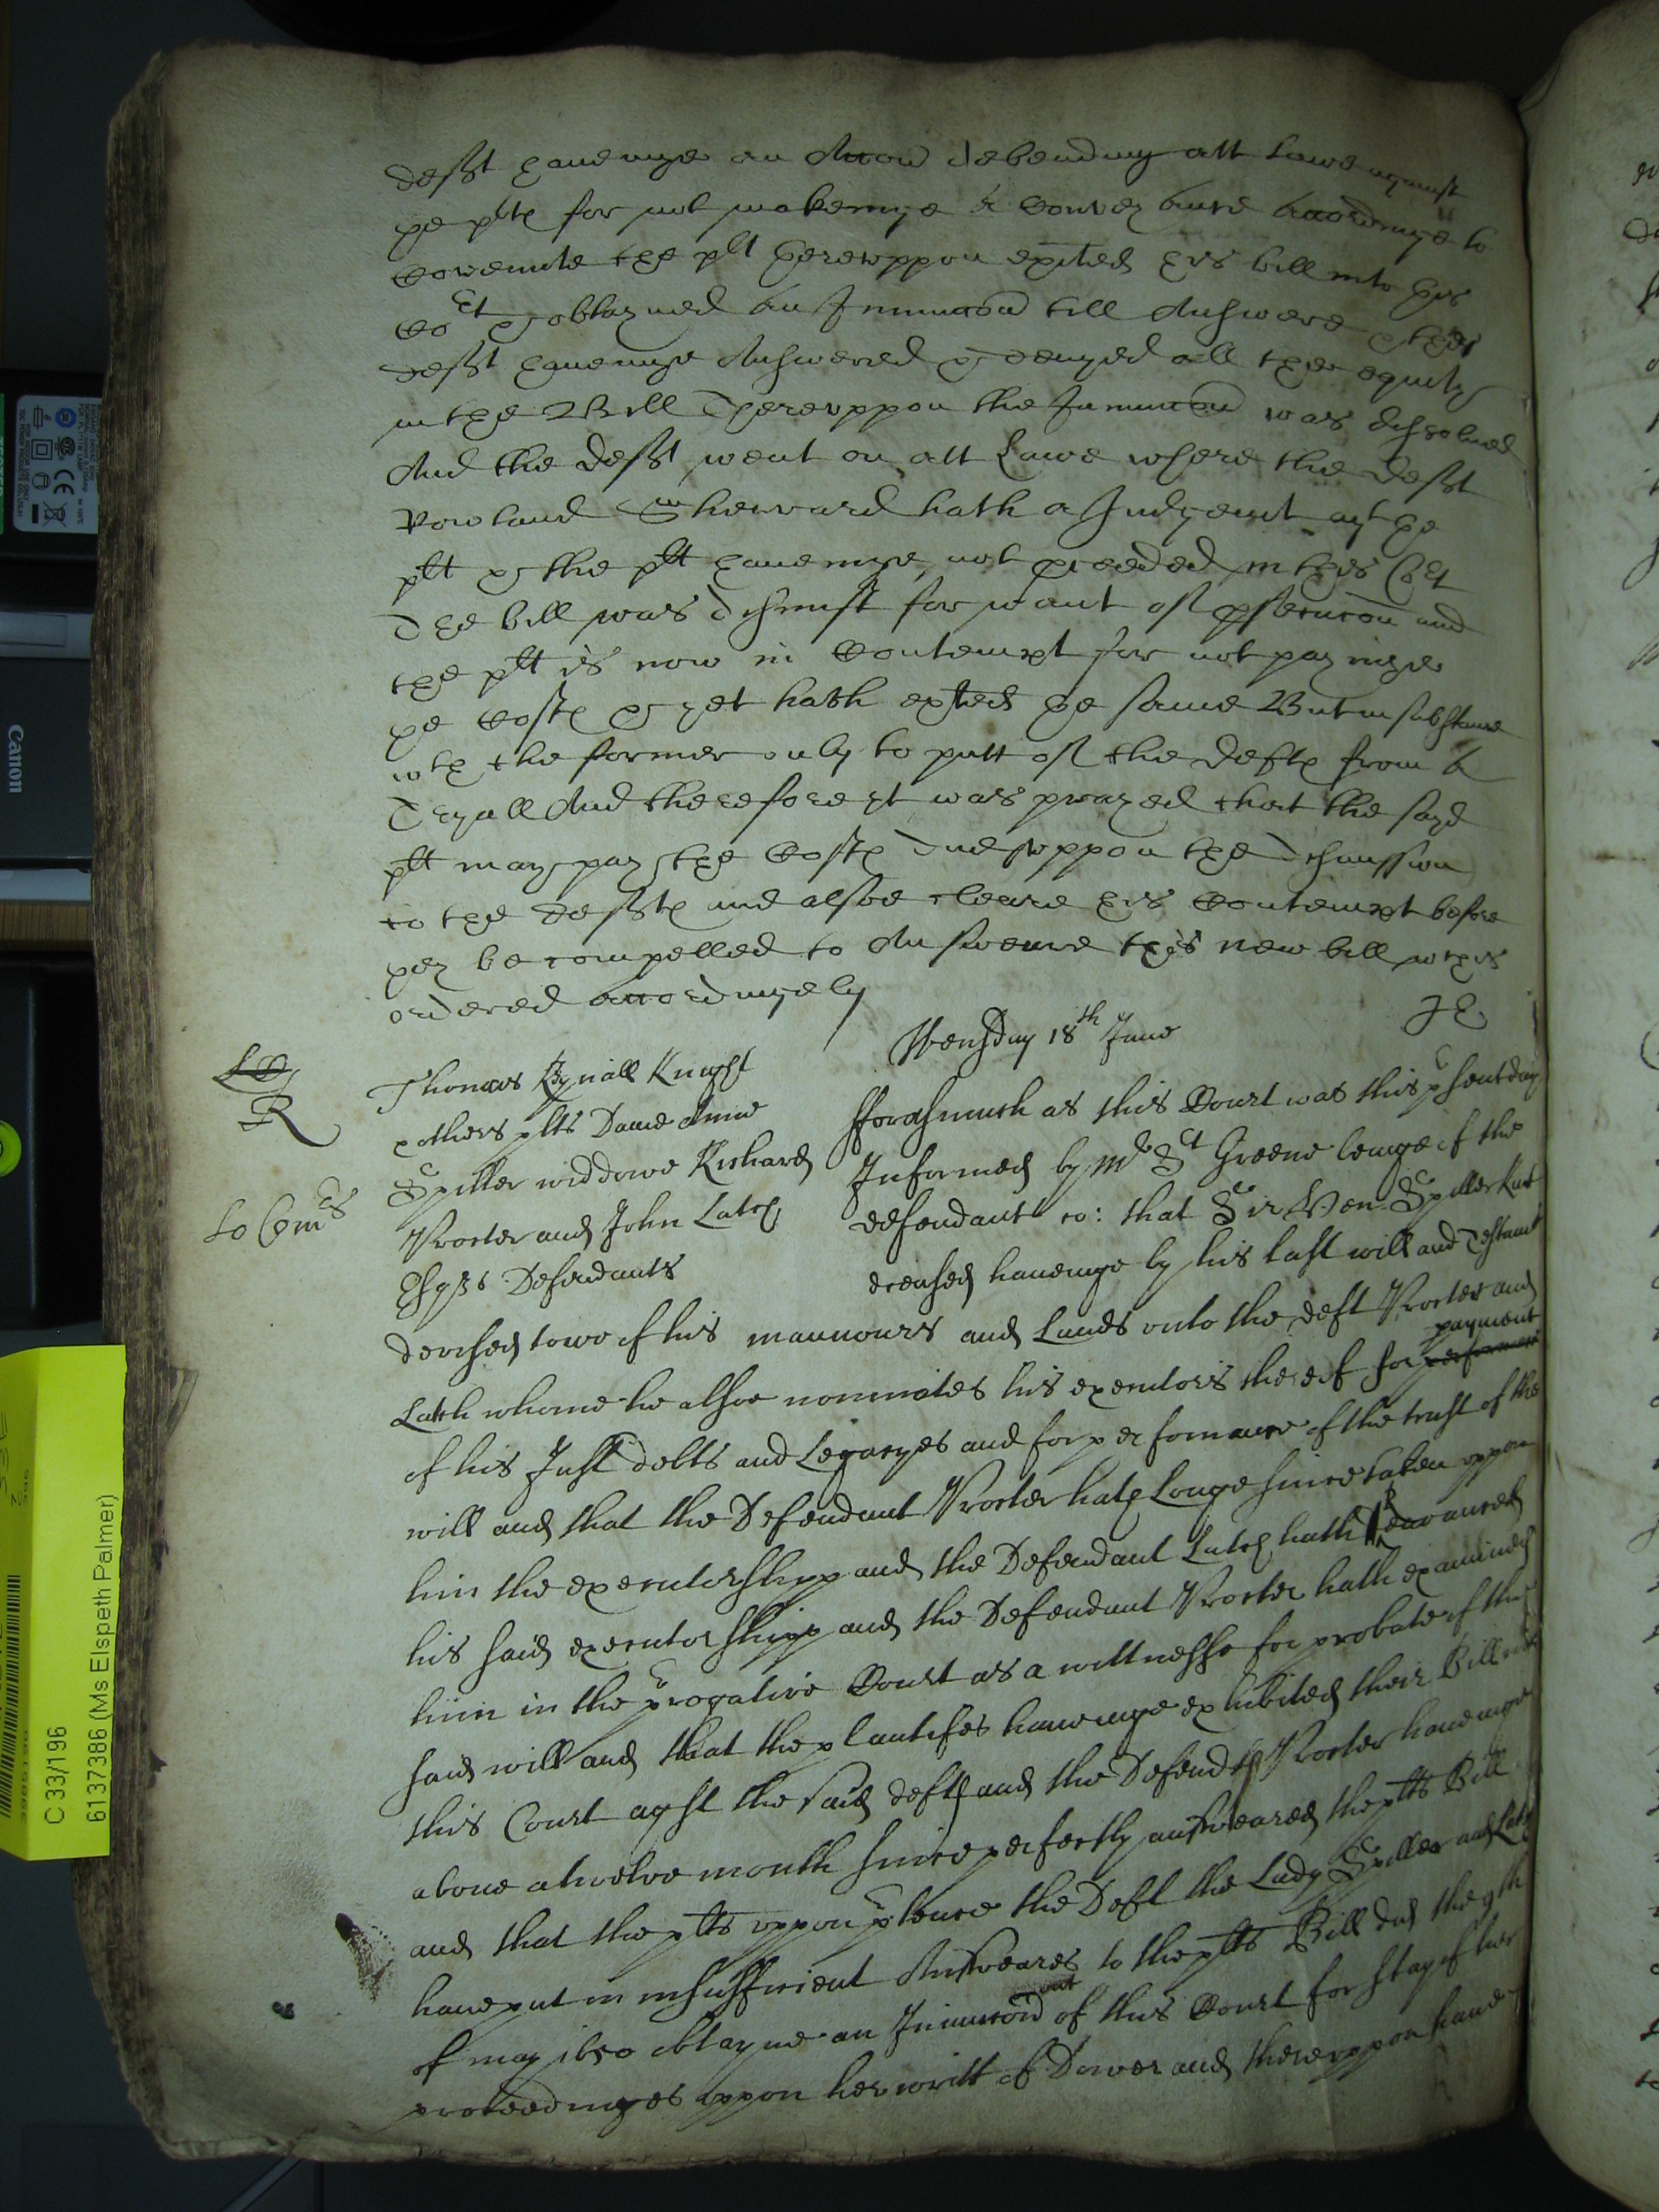 defft haveinge an Accon dependinge att Lawe against
ye plts for not makeinge a Convey aunce accordinge to
Covennte the plt hereuppon exited his bill into this
Cort & obtayned an Iniunccon till Answere & the
defft haveinge Answered & denyed all the equity
in the Bill Thereuppon the Iniunccon was dissolved
And the defft went on att Lawe where the defft
Rowland hath a Judgemt agt ye
plt & the plt haveinge not pceeded in this Cort
The bill was dismist for want of psecucon and
the plt is now in Contempt for not payinge
ye Costs & yet hath exhted ye same Bill in substance
wth the former only to putt of the defts from a
Tryall And therefore yt was prayed that the sayd
plt may pay the Costs due uppon the dismission
to the deffts and alsoe cleare his Contempt before
they be compelled to Answeare this new bill wch is
ordered accordingely
JE
Wensday 18th June
R
Thomas Rynall Knight
& others plts Dame Anne
Spiller widdowe Richard
Procter and John Latch
Esqrs Defendants
to Comrs
fforasmuch as this Court was this psent day
Informed by Mr Srt Greene beinge of the
defendants co: that Sir Hen: Spiller Knt
deceased haveinge by his last will and Testamt
devised towo of his mannours and Lands unto the deft Procter and
Latch whome he alsoe nominates his executors thereof for performance payment
of his Just debts and Legacyes and for performance of the trust of the
will and that the Defendant Procter hath Longe since taken uppon
him the executorshipp and the Defendant Latch hath
his said executorshipp and the Defendant Procter hath examined
him in the progative Court as a wittnesse for probate of the
said will and that the plantifes haveinge exhibited their Bill into
this Court agst the said defts and the Defendt Procter haveinge
above a twelve month since perfectly answeared the plts Bill
and that the plts uppon ptence the Deft the Lady Spiller and Latch
have put in insufficient Answeares to the plts Bill did the 9th
of may 1650 obtayne an Iniunccon out of this Court for stay of her
proceedinges uppon her writt of Dower and thereuppon have
Canon
C 33/196
6137386 (Ms Elspeth Palmer)